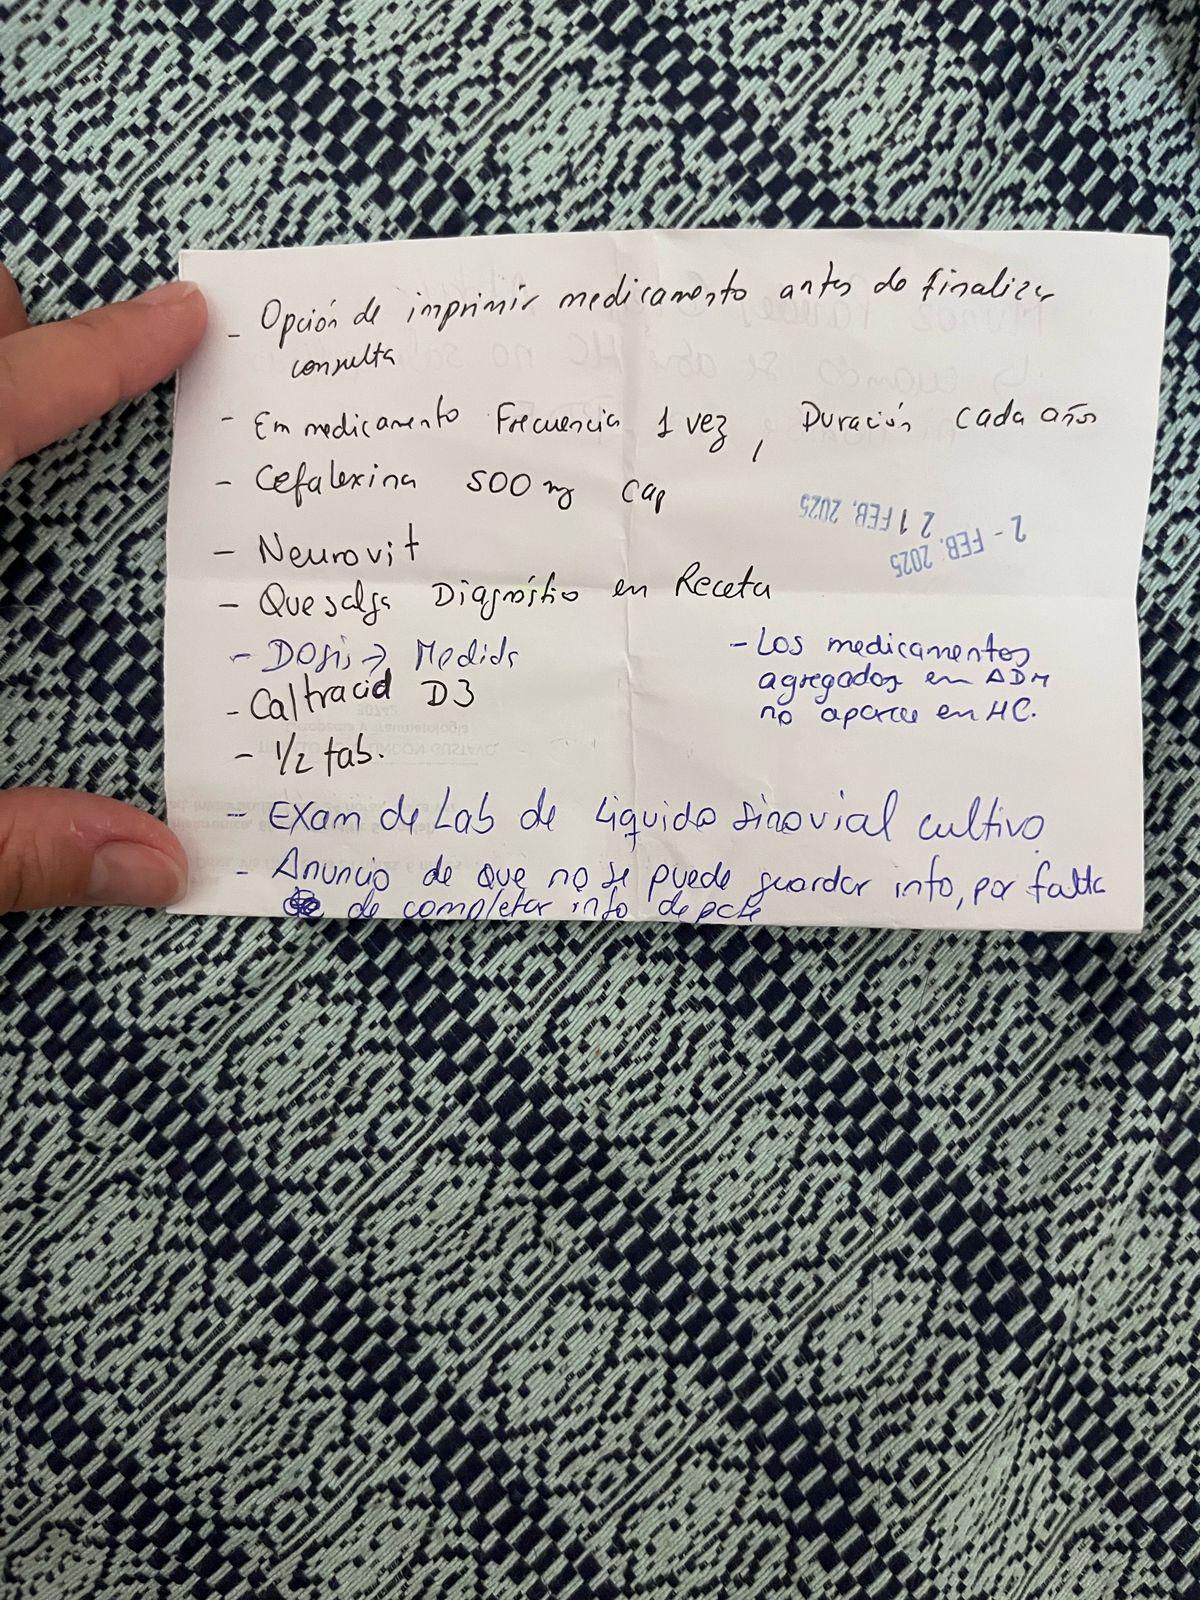 - Opción de imprimir medicamento antes de finalizar
consulta
- En medicamento Frecuencia 1 vez, Duración cada años
- Cefalexina 500 mg cap
- Neurovit
- Que salga Diagnóstio en Receta
- Dosis → Medida
- Caltracid D3
- 1/2 tab.
21 FEB. 2025
2 - FEB. 2025
- Los medicamentos
agregados en ADM
no aparece en HC.
- Exam de Lab de Liquido sinovial cultivo
- Anuncio de que no se puede guardar info, por falta
de completar info de pcte